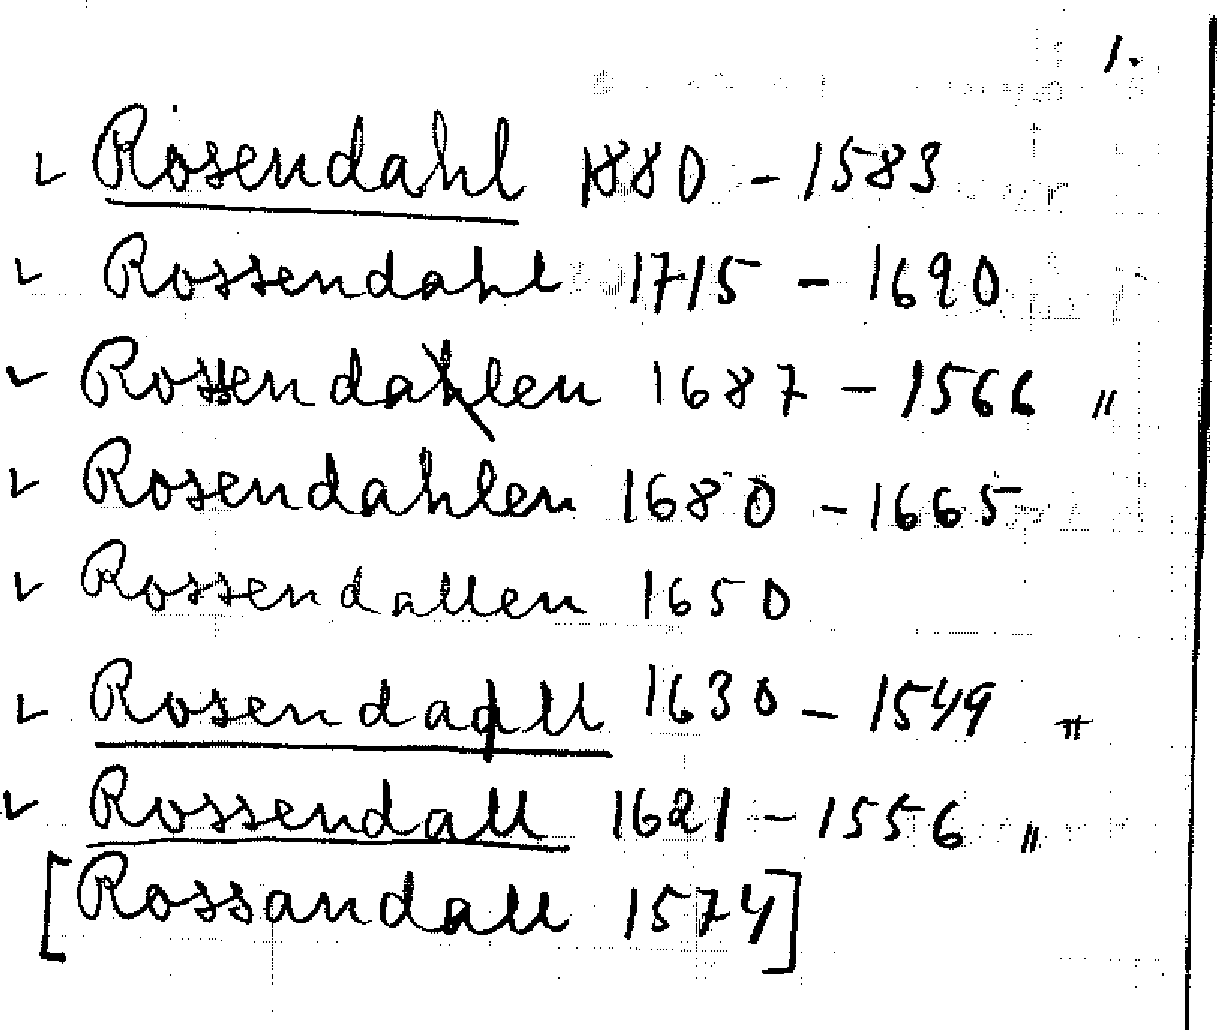 1.
✓ Rosendahl 1880 - 1583
✓ Rossendahl 1715 - 1690
✓ Rossendahlen 1687 - 1566 "
✓ Rosendahlen 1680 - 1665
✓ Rossendallen 1650
✓ Rosendall 1630 - 1549 "
✓ Rossendall 1621 - 1556 "
[Rossandall 1574]